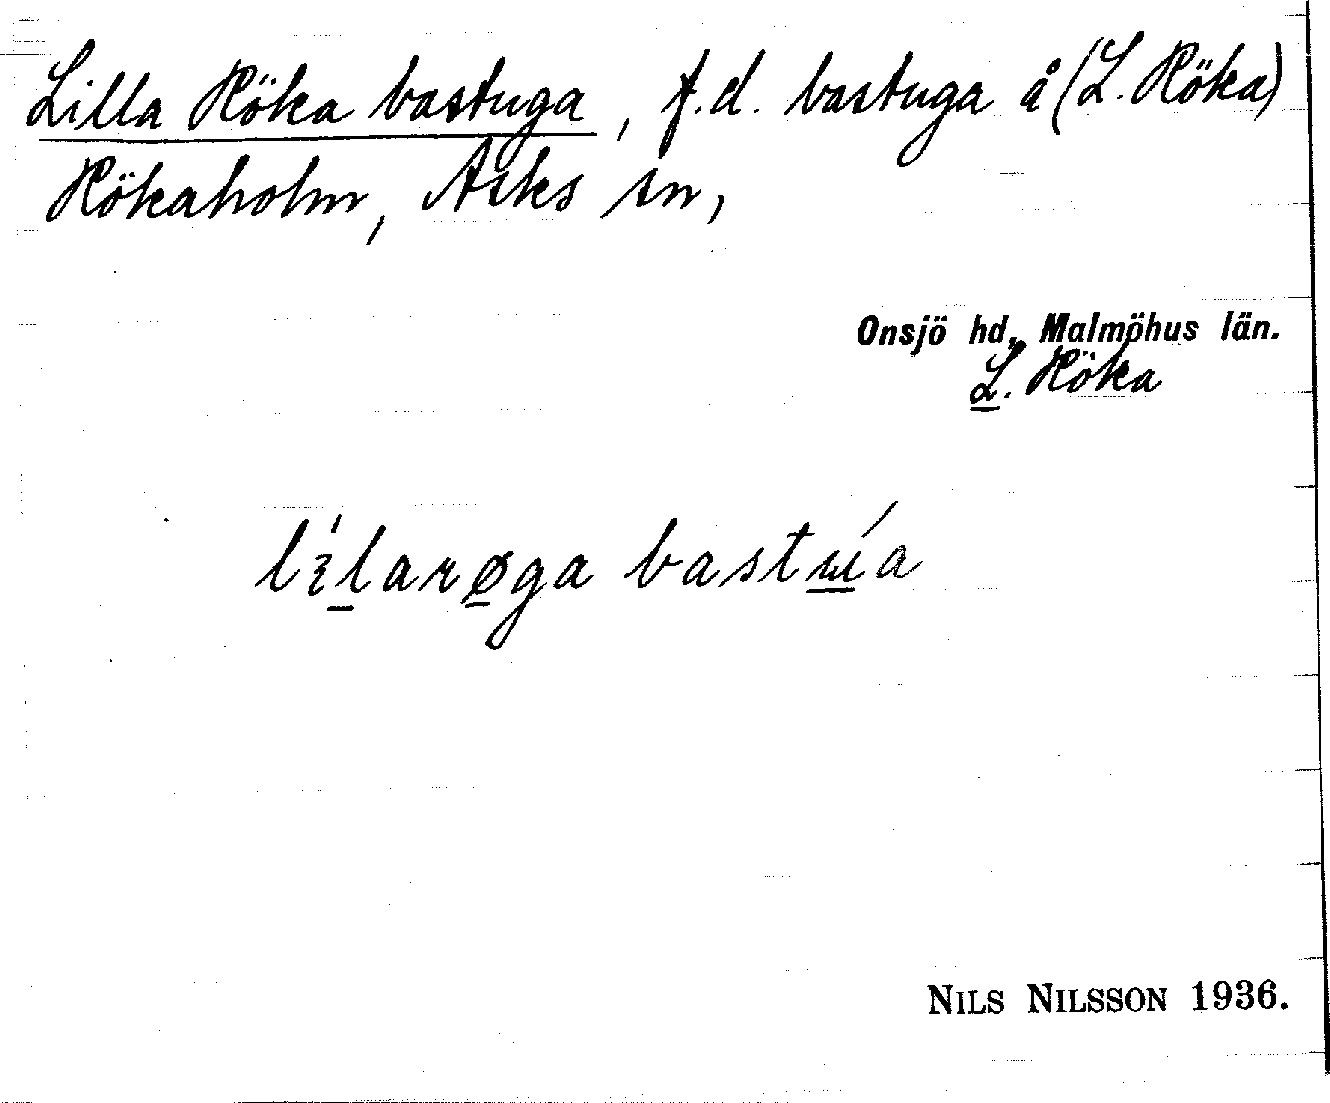 Lilla Röka bastuga, f.d. bastuga å (L. Röka)
Rökaholm, Asks sn,
Onsjö hd, Malmöhus län.
L. Röka
lílarøga bastɯ́a
NILS NILSSON 1936.